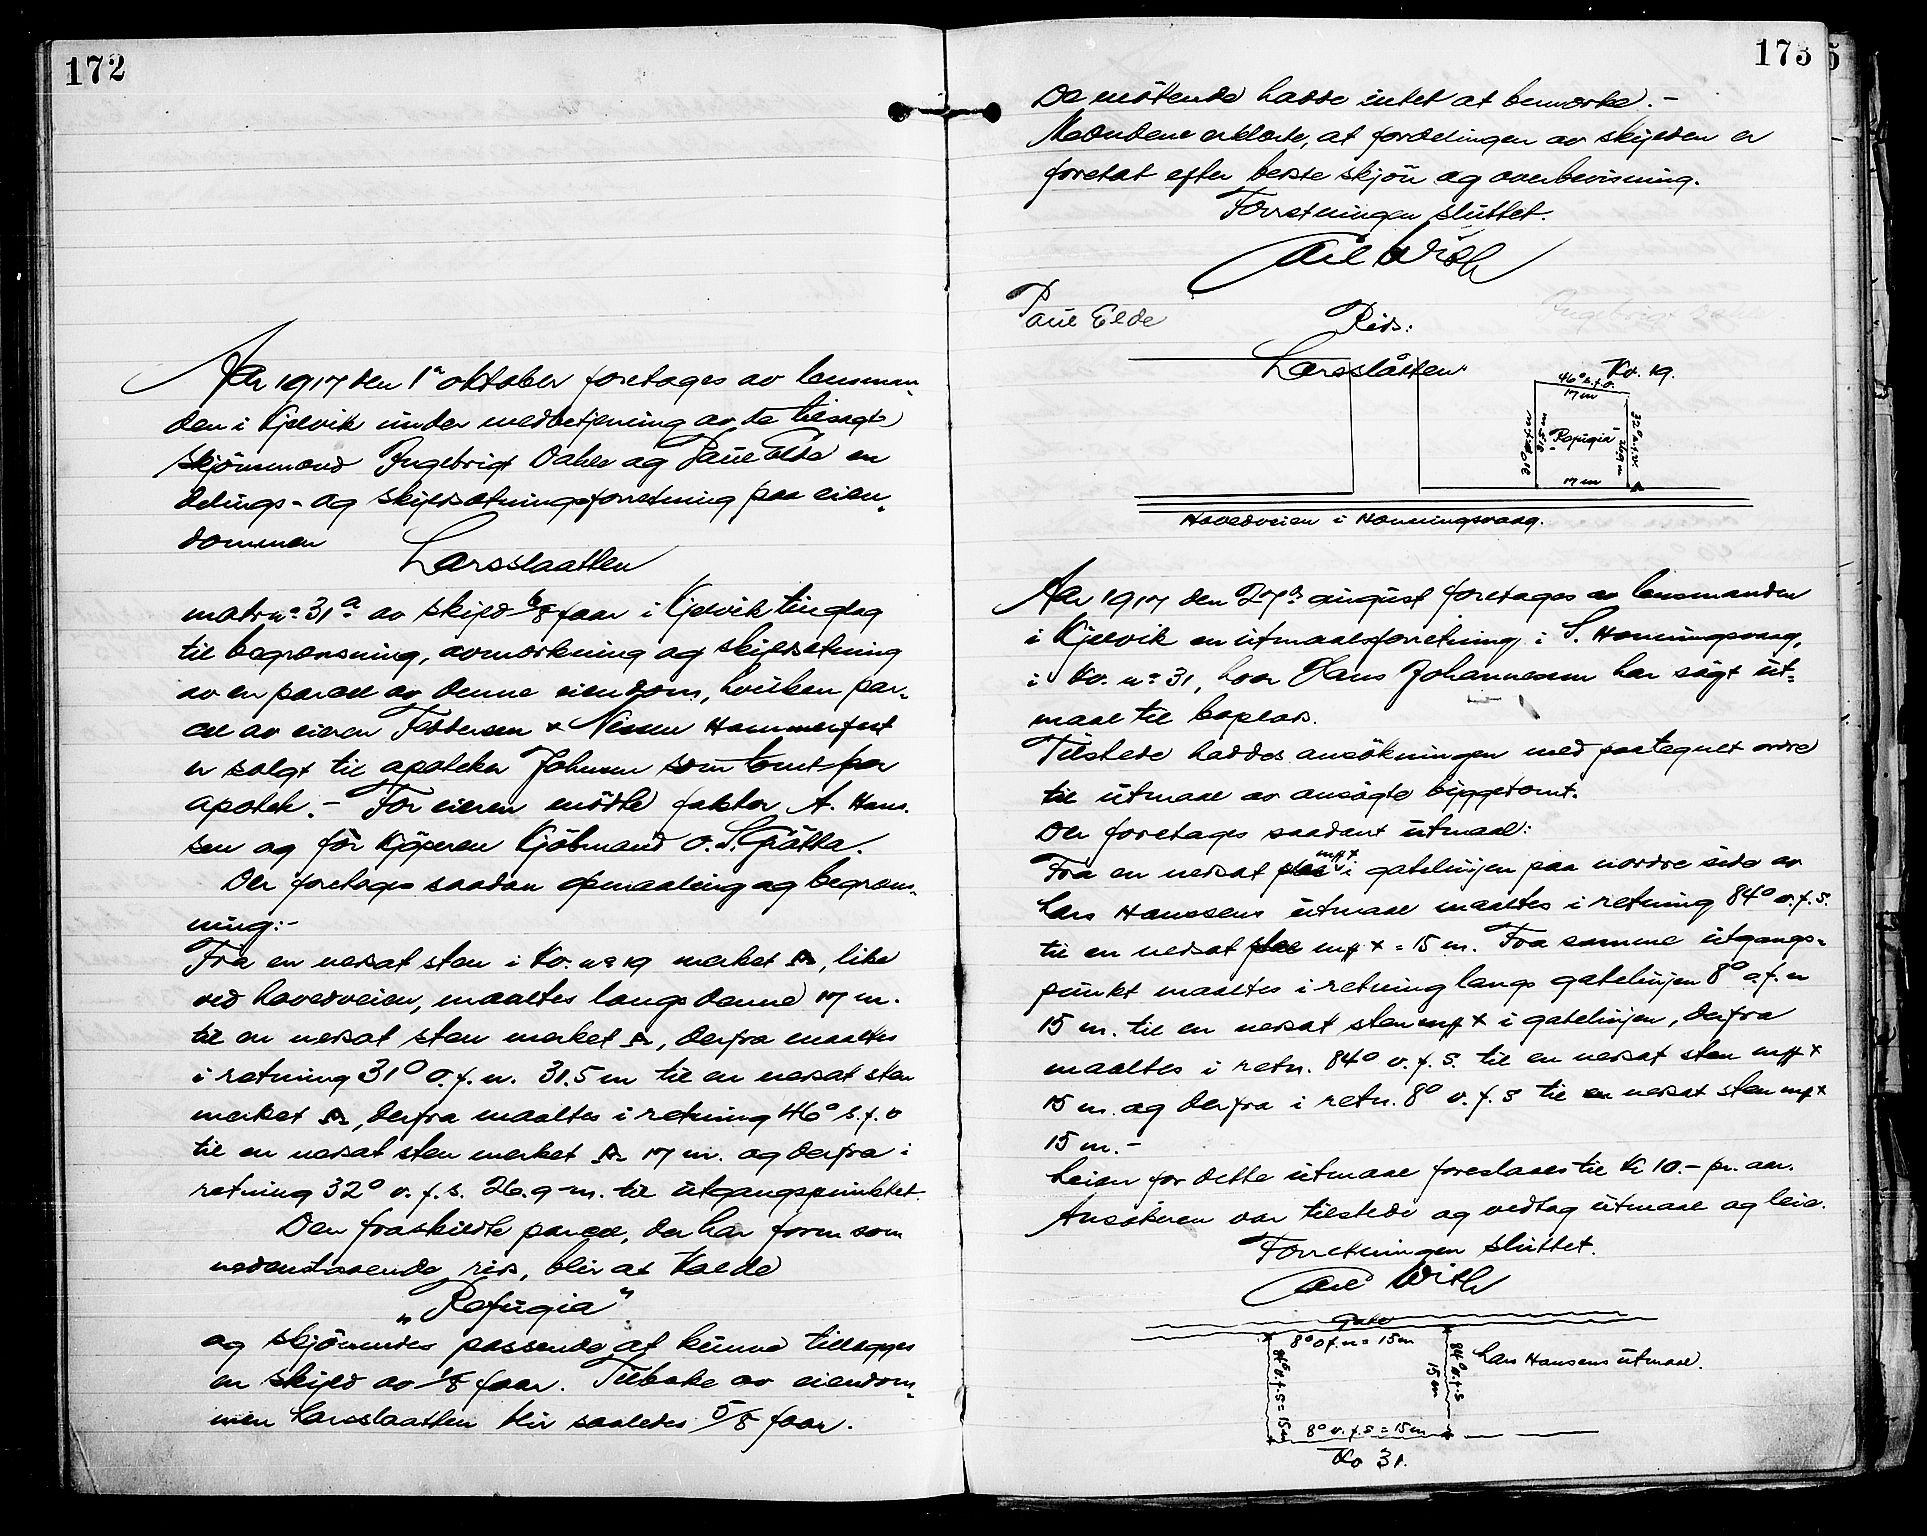 172
Aar 1917 den 1ª oktober foretages av lensman-
den i Kjelvik under medbetjening av de tilsagte
skjönnmænd Ingebrigt Dahle og Paul Elde en
delings- og skjelsætningsforretning paa eien-
dommen
Larsslaatten
matr nº 31ª av skjeld 6/8 faar i Kjelvik tinglag
til begrænsning, avmerkning og skjelsætning
av en parcel av denne eiendom, hvilken par-
cel av eieren Feddersen & Nissen Hammerfest
er solgt til apoteker Johnsen som tomt for
apotek. – For eieren mödte faktor A. Han-
sen og for kjöperen Kjöbmand O. S.
Der foretages saadan opmaaling og begræns-
ning:-
Fra en nedsat sten i Kv. nº 19 merket A, like
ved hovedveien, maaltes langs denne 17 m.
til en nedsat sten merket A, derfra maaltes
i retning 31° ö.f.n. 31.5 m til en nedsat sten
merket A, derfra maaltes i retning 46° s.f.ö
til en nedsat sten merket A 17 m. og derfra i
retning 32° v.f.s. 26.9 m. til utgangspunktet.
Den fraskildte parcel, der har form som
nedenstaaende rids, blir at kalde
„Refugia"
og skjönnedes passende at kunne tillægges
en skjeld av 1/8 faar. Tilbake av eiendom-
men Larsslaatten blir saaledes 5/8 faar.
173
De mötende hadde intet at bemerke. –
Mændene erklærte, at fordelingen av skjelden er
foretat efter beste skjön og overbevisning.
Forretningen sluttet.
Carl With
Paul Elde
Ingebrigt
Rids:
Larsslåtten
Kv. 19.
46° s.f.ö.
17 m
„Refugia"
17 m
Hovedveien i Honningsvaag.
Aar 1917 den 27de august foretages av lensmanden
i Kjelvik en utmaalsforretning i S. Honningsvaag,
i Kv. nº 31, hvor Hans Johannesen har sögt ut-
maal til boplads.
Tilstede haddes ansökningen med paategnet ordre
til utmaal av ansögte byggetomt.
Der foretages saadant utmaal:
Fra en nedsat pæl mrk + i gatelinjen paa nordre side av
Lars Hanssens utmaal maaltes i retning 84° v.f.s.
til en nedsat pæl mrk + = 15 m. Fra samme utgangs-
punkt maaltes i retning langs gatelinjen 8° ö.f.n
15 m. til en nedsat sten mrk + i gatelinjen, derfra
maaltes i retn. 84° v.f.s. til en nedsat sten mrk +
15 m. og derfra i retn. 8° v.f.s til en nedsat sten mrk +
15 m. –
Leien for dette utmaal foreslaaes til Kr 10.– pr. aar.
Ansökeren var tilstede og vedtog utmaal og leie.
Forretningen sluttet.
Carl With
Gate
8° ö.f.n = 15 m
84° v.f.s = 15 m
84° v.f.s
15 m
Lars Hansens utmaal.
8° v.f.s = 15 m
Kv 31.